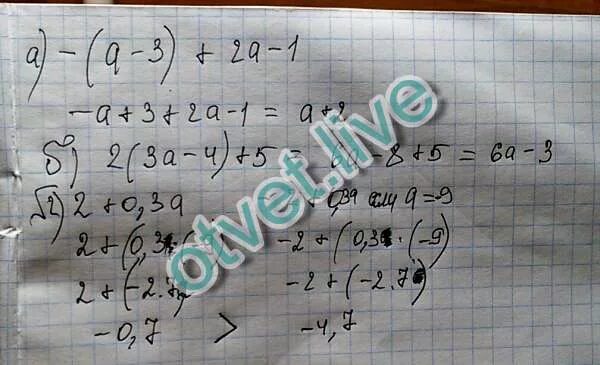 а) -(a-3) + 2a-1
-a+3+2a-1 = a+2
б) 2(3a-4)+5 = 6a-8+5 = 6a-3
√2) 2+0,3a -2+0,3a если a=-9
2+(0,3·(-9) -2+(0,3·(-9)
2+(-2.7) -2+(-2.7)
-0,7 > -4,7
otvet.live